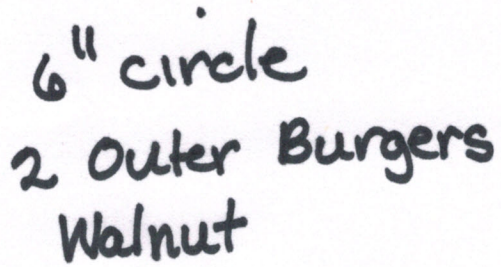 6" circle
2 Outer Burgers
Walnut